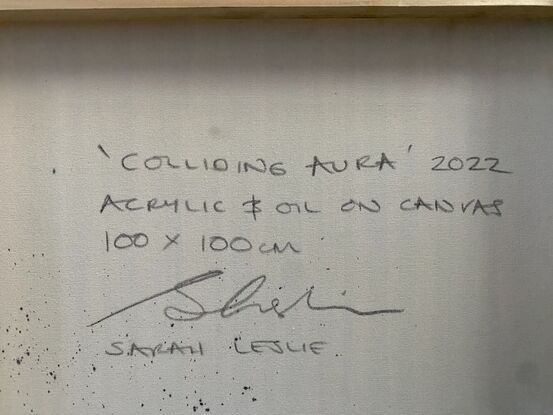 'COLLIDING AURA' 2022
ACRYLIC & OIL ON CANVAS
100 X 100cm
SARAH LESLIE